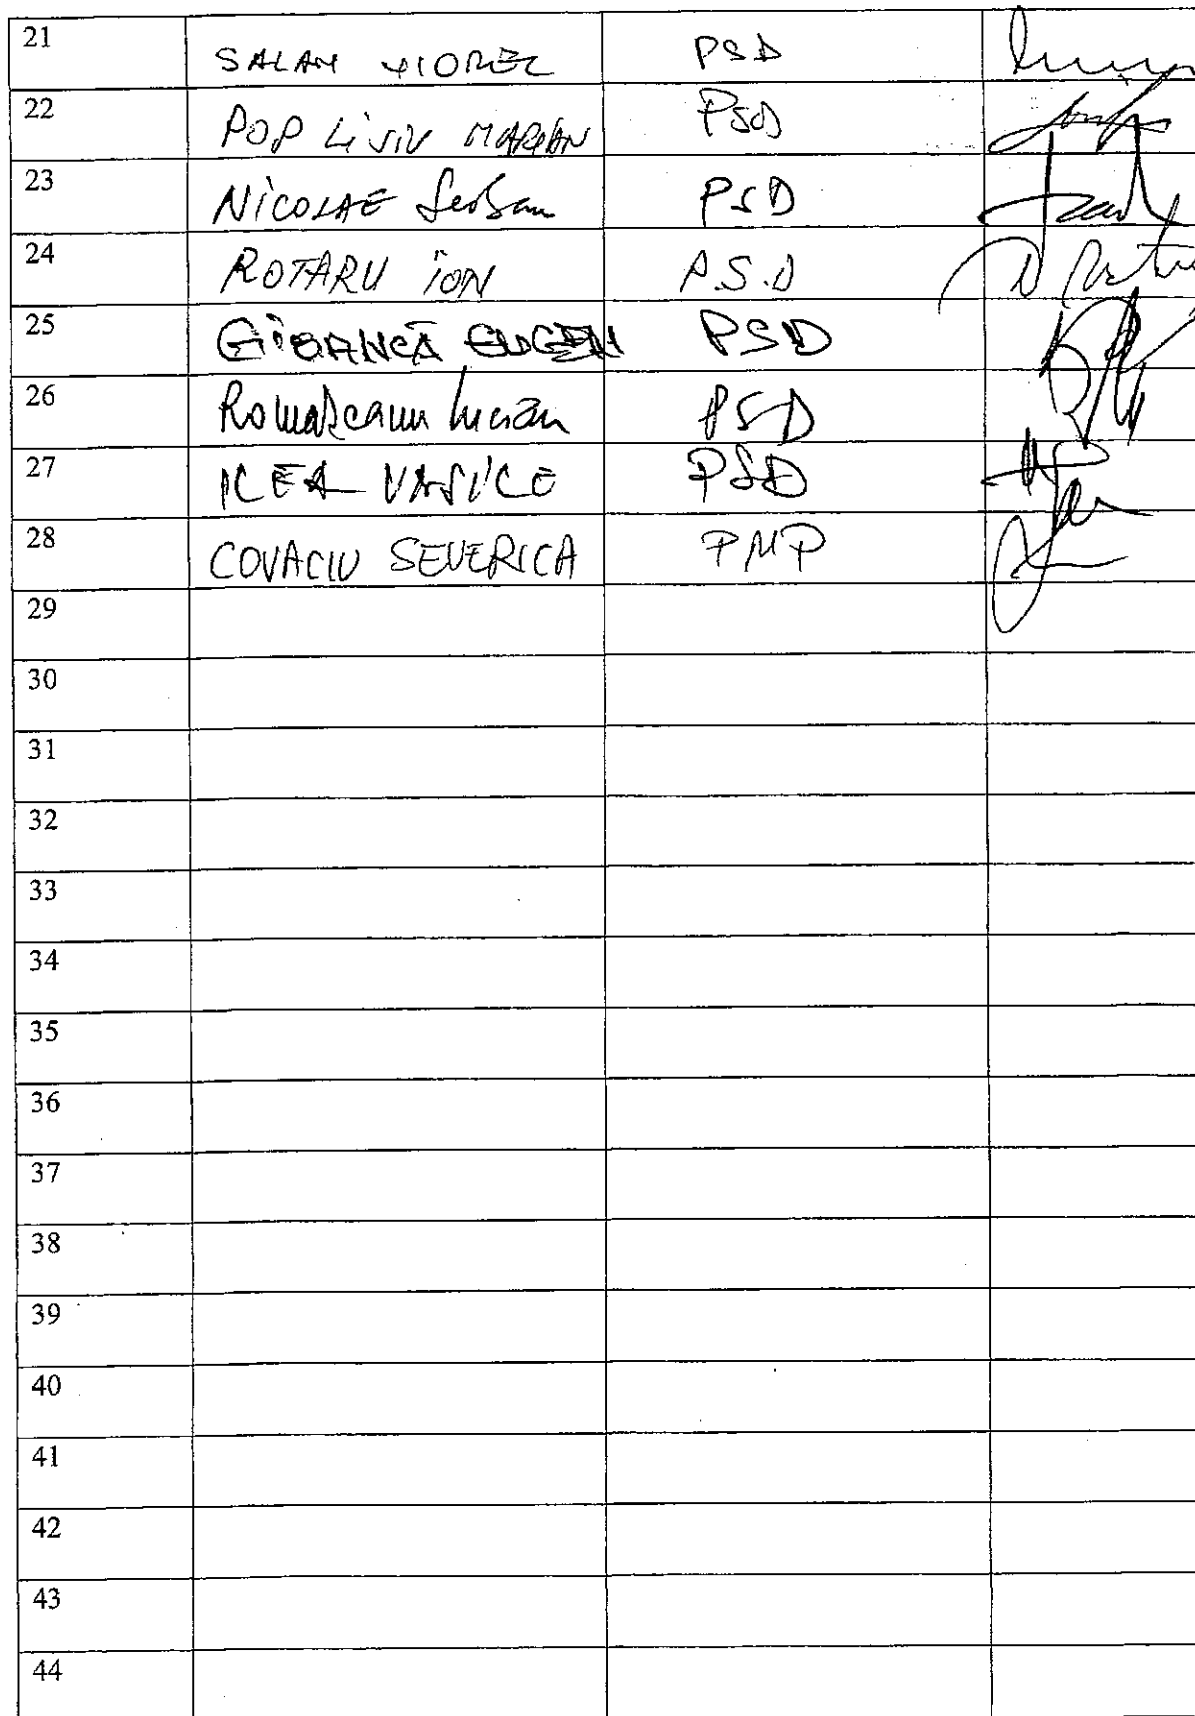 21 SALAN VIOREL PSD
22 POP LiViU MARIAN PSD
23 NiCOLAE Serban PSD
24 ROTARU iON P.S.D
25 GiOANCĂ EUGEN PSD
26 Romașcanu Lucian PSD
27 ILEA VASiLE PSD
28 COVACIU SEVERICA PMP
29
30
31
32
33
34
35
36
37
38
39
40
41
42
43
44